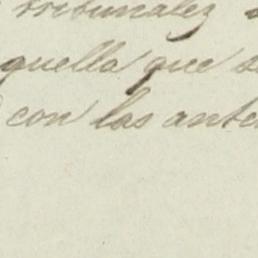 tribunales
quella que
con las ante